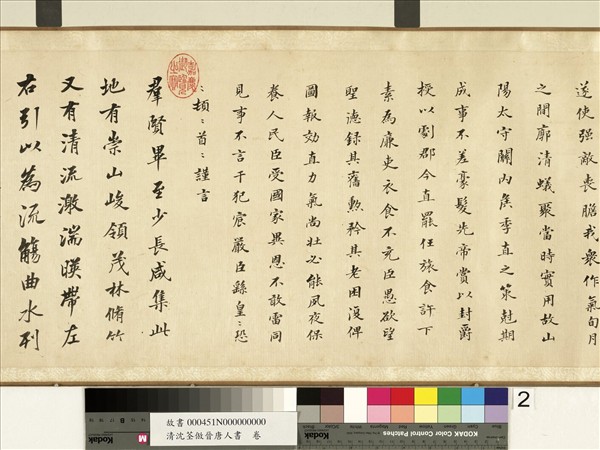 遂使强敵喪膽我衆作氣旬月
之間廓清蟻聚當時實用故山
陽太守關內侯季直之策尅期
成事不差豪髮先帝賞以封爵
授以劇郡今直罷任旅食許下
素為廉吏衣食不充臣愚欲望
聖德錄其舊勲矜其老困復俾
圖報効直力氣尚壯必能夙夜保
養人民臣受國家異恩不敢雷同
見事不言干犯宸嚴臣繇皇〻恐
〻頓〻首〻謹言
羣賢畢至少長咸集此
地有崇山峻領茂林脩竹
又有清流激湍暎帶左
右引以為流觴曲水列
故書 000451N000000000
清沈荃倣晉唐人書 卷
Kodak
M
KODAK Color Control Patches
2